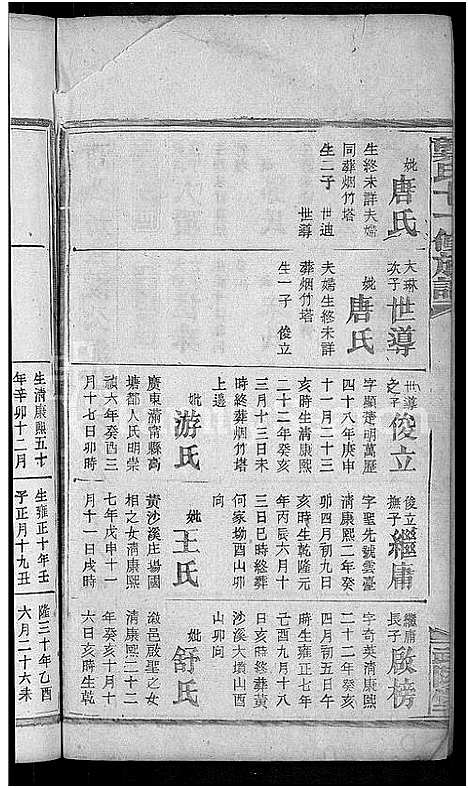 妣唐氏
生終未詳夫婦
同葬烟竹塔
生二子 世迪
世導
大琳次子世導
妣唐氏
夫婦生終未詳
葬烟竹塔
生一子 俊立
世導之子俊立
字顯楚明萬歷
四十八年庚申
十一月二十三
亥時生清康熙
二十二年癸亥
三月十三日未
時終葬烟竹塔
上邊
妣游氏
廣東潮甯縣高
塘都人氏明崇
禎六年癸酉三
月十七日卯時
俊立撫子繼庸
字聖先號雲臺
清康熙二年癸
卯四月初九日
亥時生乾隆元
年丙辰六月十
三日巳時終葬
何家坳酉山卯
向
妣王氏
黃沙溪庄場國
相之女清康熙
七年戊申十一
月十一日戌時
繼庸長子啟榜
字奇英清康熙
二十二年癸亥
四月初五日午
時生雍正七年
己酉九月十八
日亥時終葬黃
沙溪大塅山酉
山卯向
妣舒氏
漵邑啟聖之女
清康熙二十二
年癸亥十月十
六日亥時生乾
生清康熙五十
年辛卯十二月
生雍正十年壬
子正月十九丑
隆三十年乙酉
六月二十六未